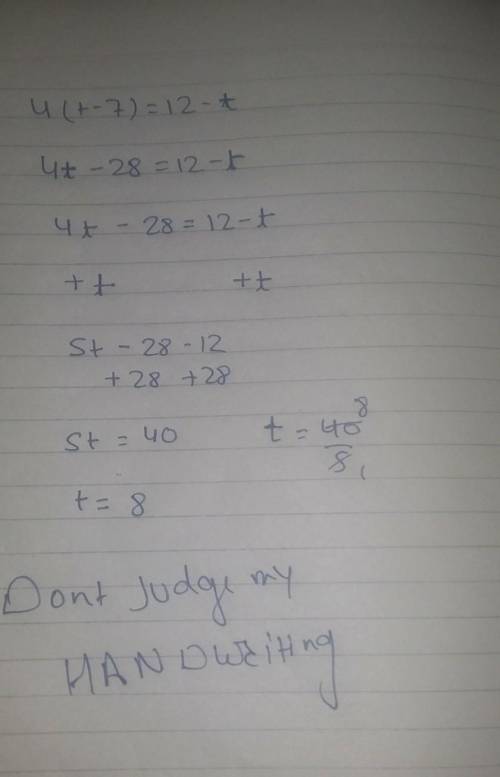 4(t-7)=12-t
4t -28=12-t
4t - 28=12-t
+t +t
5t - 28 - 12
+28 +28
5t = 40 t = 40 8
8 1
t = 8
Dont Judge my
HANDWRiting